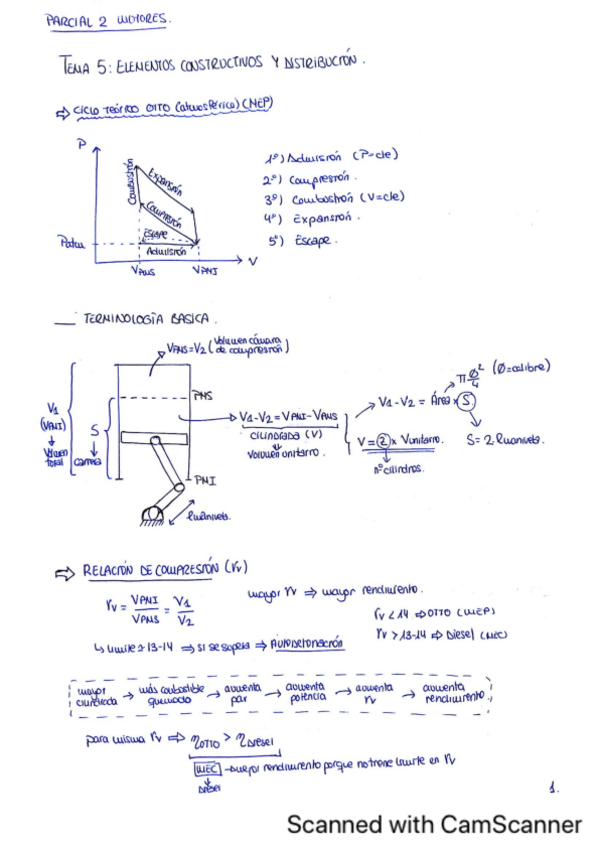 PARCIAL 2 MOTORES.
TEMA 5: ELEMENTOS CONSTRUCTIVOS Y DISTRIBUCIÓN.
⇒ CICLO TEÓRICO OTTO (atmosférico) (MEP)
P
Combustión
Expansión
Compresión
Escape
Admisión
Patm
VPMS
VPMI
V
1º) Admisión (P=cte)
2º) Compresión.
3º) Combustión (V=cte)
4º) Expansión.
5º) Escape.
— TERMINOLOGÍA BÁSICA.
VPMS=V2 (Volumen cámara de compresión)
PMS
V1
(VPMI)
↓
Volumen
total
S
↓
carrera
PMI
Manivela.
V1-V2 = VPMI-VPMS
CILINDRADA (V)
Volumen unitario.
V1-V2 = Área x S
π ø²/4 (ø=calibre)
S= 2 Rmanivela.
V = 2 x Vunitario.
nº cilindros.
⇒ RELACIÓN DE COMPRESIÓN (rv)
rv = VPMI / VPMS = V1 / V2
mayor rv ⇒ mayor rendimiento.
rv < 14 ⇒ OTTO (MEP)
rv > 13-14 ⇒ Diesel (MEC)
↳ límite ≈ 13-14 ⇒ si se supera ⇒ AUTODETONACIÓN
mayor cilindrada → más combustible quemado → aumenta par → aumenta potencia → aumenta rv → aumenta rendimiento.
para misma rv ⇒ ηOTTO > ηDiesel
MEC → mejor rendimiento porque no tiene límite en rv
↓
Diesel
1.
Scanned with CamScanner